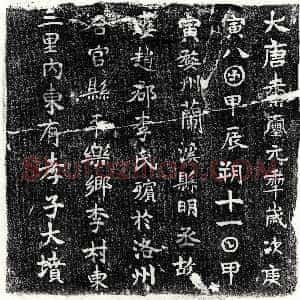 大唐𡕀𡔈元𠡦歲次庚
寅八𠥱甲辰朔十一𡆠甲
寅婺州蘭溪縣明丞故
妻趙郡李氏殯於洺州
官縣平樂鄉李村東
三里內東有孝子大墳